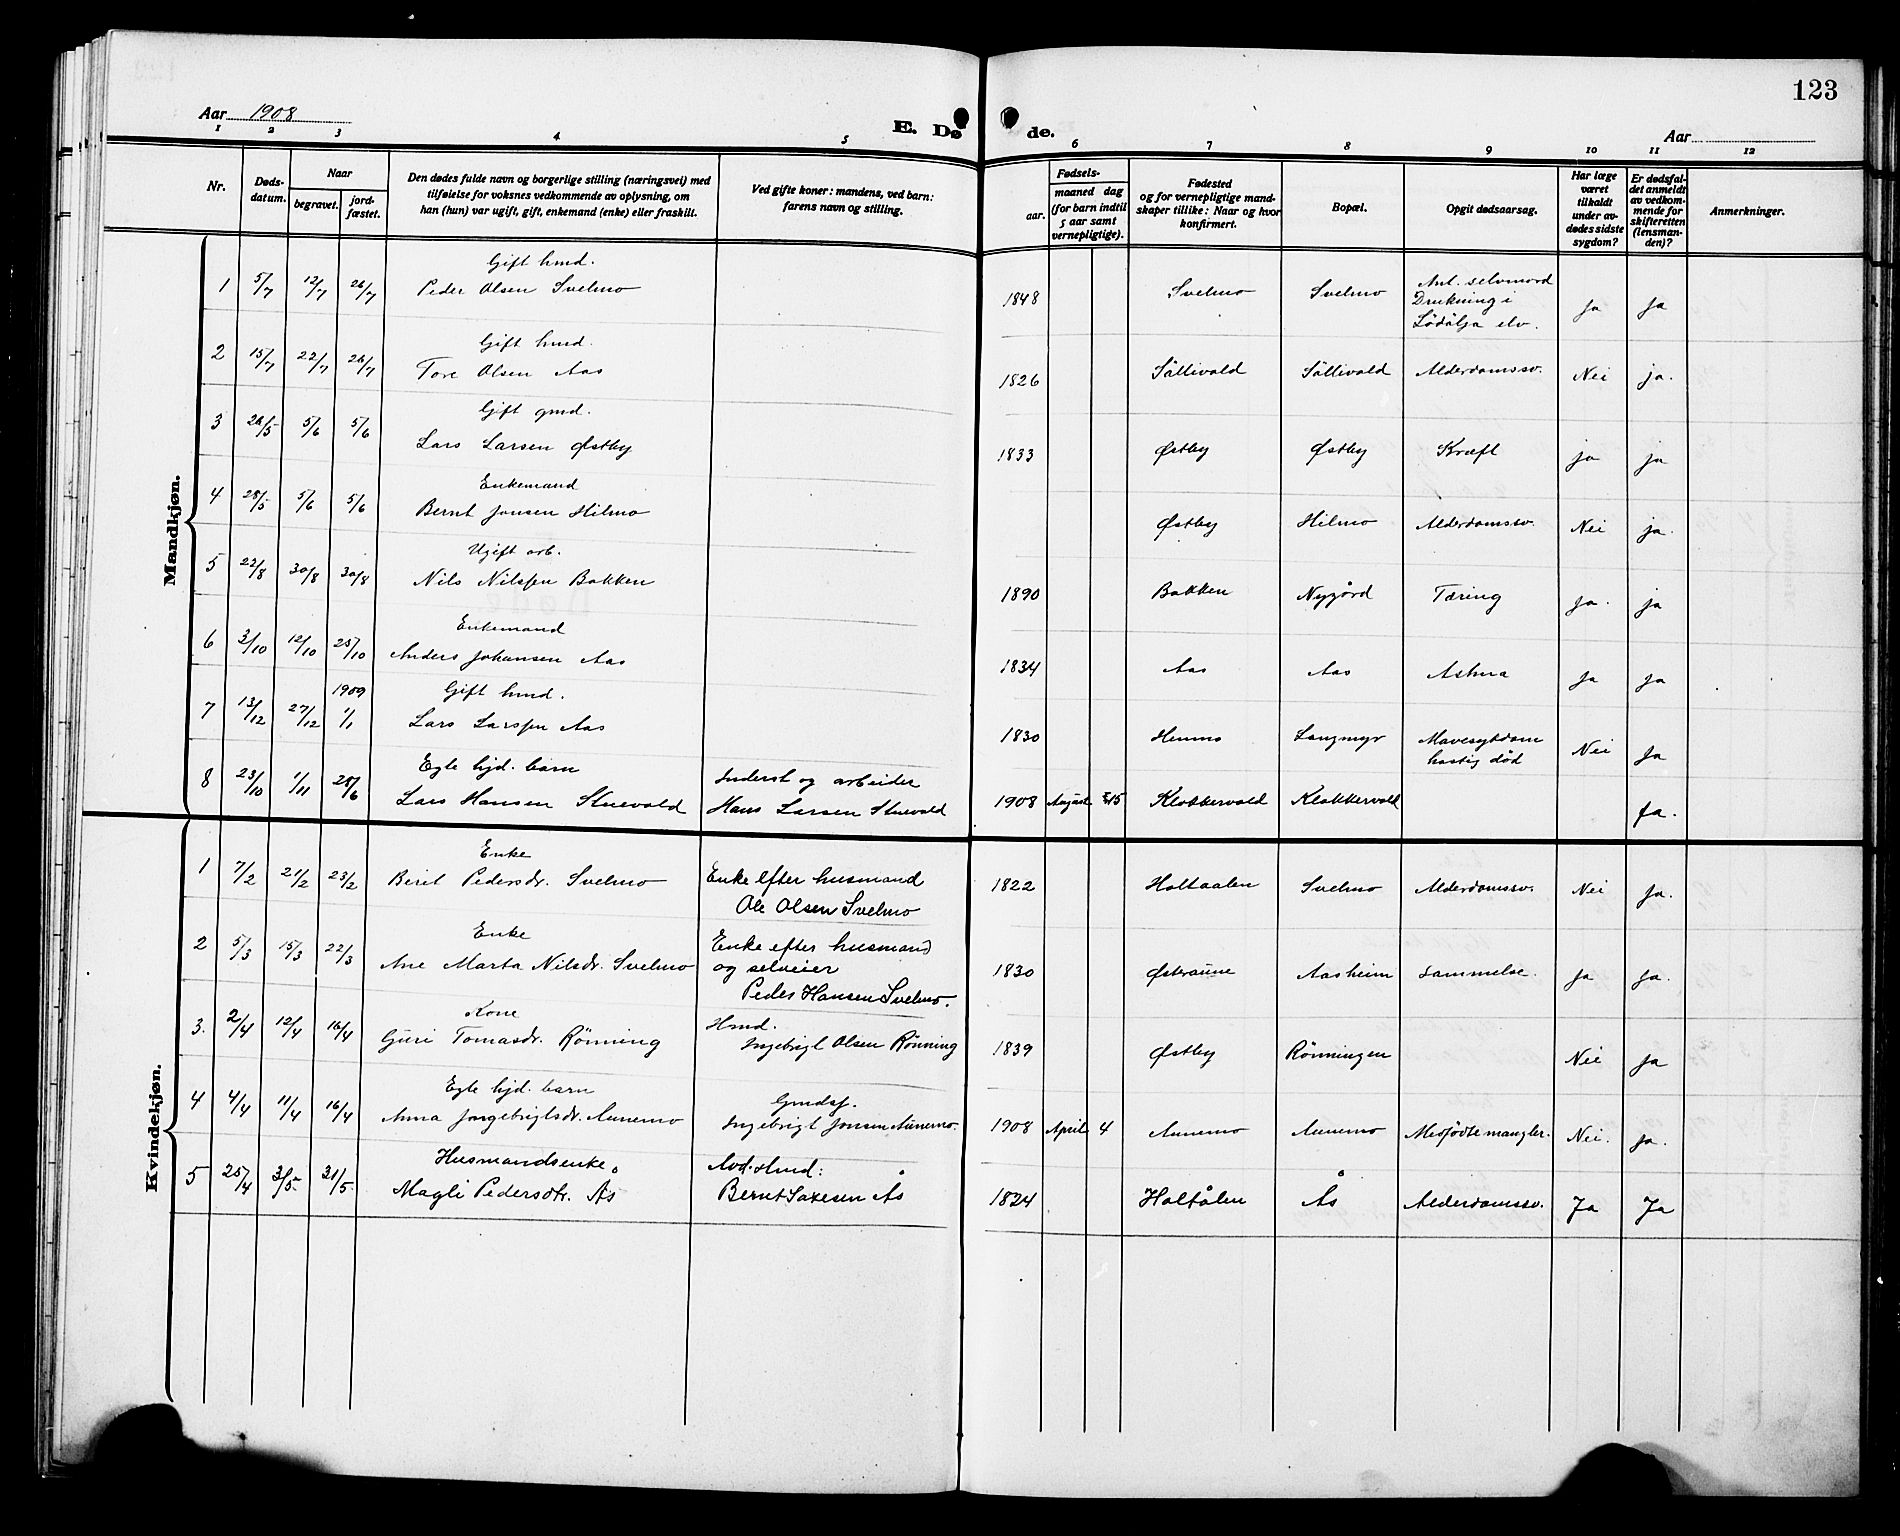 123
Aar 1908
E. Dø de.
Aar
1 2 3 4 5 6 7 8 9 10 11 12
Nr.
Døds-
datum.
Naar
begravet.
jord-
fæstet.
Den dødes fulde navn og borgerlige stilling (næringsvei) med
tilføielse for voksnes vedkommende av oplysning, om
han (hun) var ugift, gift, enkemand (enke) eller fraskilt.
Ved gifte koner: mandens, ved barn:
farens navn og stilling.
Fødsels-
aar.
maaned dag
(for barn indtil
5 aar samt
vernepligtige).
Fødested
og for vernepligtige mand-
skaper tillike: Naar og hvor
konfirmert.
Bopæl.
Opgit dødsaarsag.
Har læge
været
tilkaldt
under av-
dødes sidste
sygdom?
Er dødsfal-
det anmeldt
av vedkom-
mende for
skifteretten
(lensman-
den)?
Anmerkninger.
Mandkjøn.
Gift hmd.
1 5/7 12/7 26/7 Peder Olsen Svelmo 1848 Svelmo Svelmo Ant. selvmord
Drukning i
Lödölja elv. Ja Ja
Gift hmd.
2 15/7 22/7 26/7 Tore Olsen Aas 1826 Sällivald Sällivald Alderdomssv. Nei ja.
Gift gmd.
3 26/5 5/6 5/6 Lars Larsen Østby 1833 Østby Østby Kræft ja ja
Enkemand
4 28/5 5/6 5/6 Bernt Jonsen Hilmo Østby Hilmo Alderdomssv. Nei ja.
Ugift arb.
5 22/8 30/8 30/8 Nils Nilssen Bakken 1890 Bakken Nygård Tæring Ja. ja
Enkemand
6 3/10 12/10 25/10 Anders Johansen Aas 1834 Aas Aas Astma Ja Ja
1909 Gift hmd.
7 13/12 27/12 1/1 Lars Larssen Aas 1830 Hemmo Langmyr Mavesykdom
hastig död Nei Ja
Egte hjd. barn Inderst og arbeider
8 23/10 1/11 28/6 Lars Hansen Stuevold Hans Larsen Stuevold 1908 August 15 Klokkervold Klokkervold Ja.
Kvindekjøn.
Enke
1 7/2 21/2 23/2 Beret Pedersdr. Svelmo Enke efter husmand
Ole Olsen Svelmo 1822 Holtaalen Svelmo Alderdomssv. Nei Ja.
Enke
2 5/3 15/3 22/3 Ane Marta Nilsdr. Svelmo Enke efter husmand
og selveier
Peder Hansen Svelmo. 1830 Østeraune Aasheim Lammelse. Ja Ja.
Kone Hmd.
3. 2/4 12/4 16/4 Guri Tomasdr. Rönning Ingebrigt Olsen Rönning 1839 Østby Rönningen Nei Ja
Egte hjd. barn Gmdsf.
4 4/4 11/4 16/4 Anna Jngebrigtsdr. Aunemo Ingebrigt Jonsen Aunemo. 1908 April 4 Aunemo Aunemo Medfödte mangler. Nei. Ja.
Husmandsenke. Avd. Hmd:
5 25/4 3/5. 31/5. Magli Pedersdtr. Ås Bernt Saxesen Ås 1824 Holtålen Ås Alderdomssv. Ja Ja